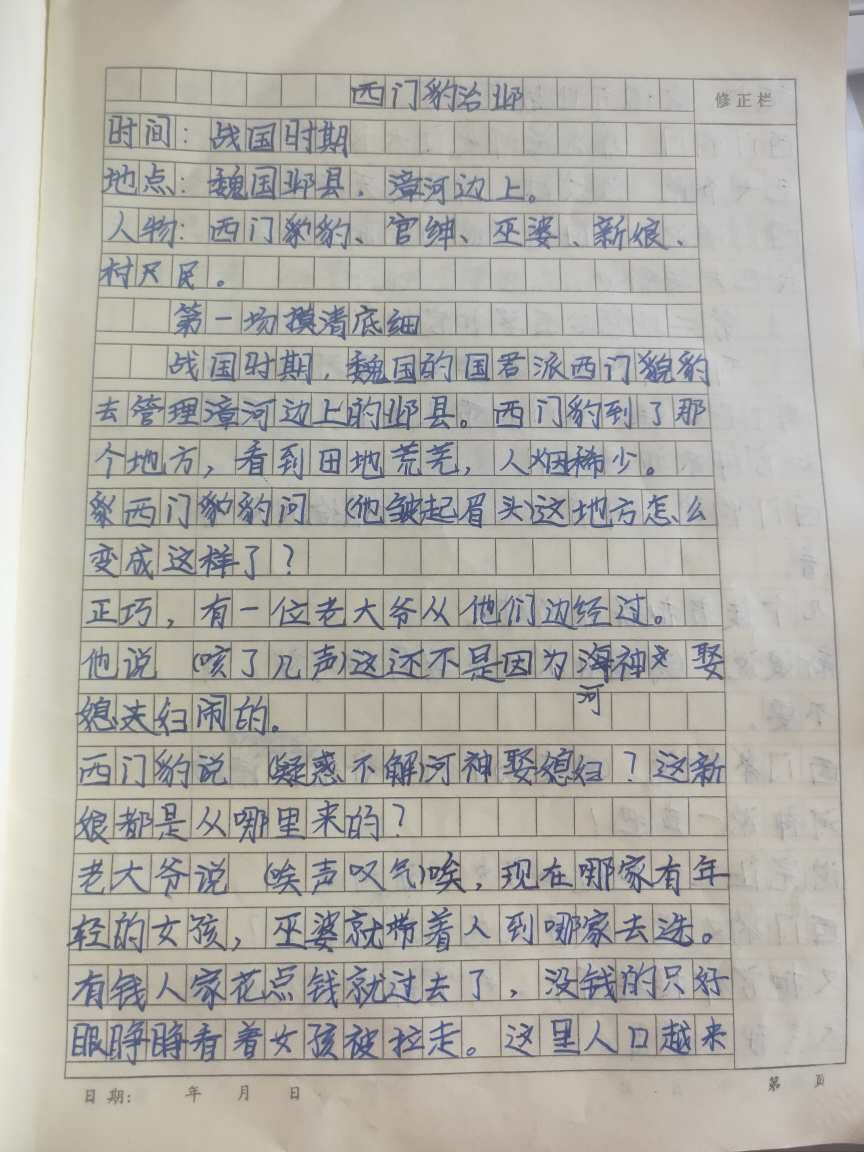 西门豹治邺
修正栏
时间：战国时期
地点：魏国邺县，漳河边上。
人物：西门豹、官绅、巫婆、新娘、
村民。
第一场摸清底细
战国时期，魏国的国君派西门豹
去管理漳河边上的邺县。西门豹到了那
个地方，看到田地荒芜，人烟稀少。
西门豹问（他皱起眉头）这地方怎么
变成这样了？
正巧，有一位老大爷从他们边经过。
他说（咳了几声）这还不是因为河神娶
媳妇闹的。
西门豹说（疑惑不解）河神娶媳妇？这新
娘都是从哪里来的？
老大爷说（唉声叹气）唉，现在哪家有年
轻的女孩，巫婆就带着人到哪家去选。
有钱人家花点钱就过去了，没钱的只好
眼睁睁看着女孩被拉走。这里人口越来
日期： 年 月 日
第 页